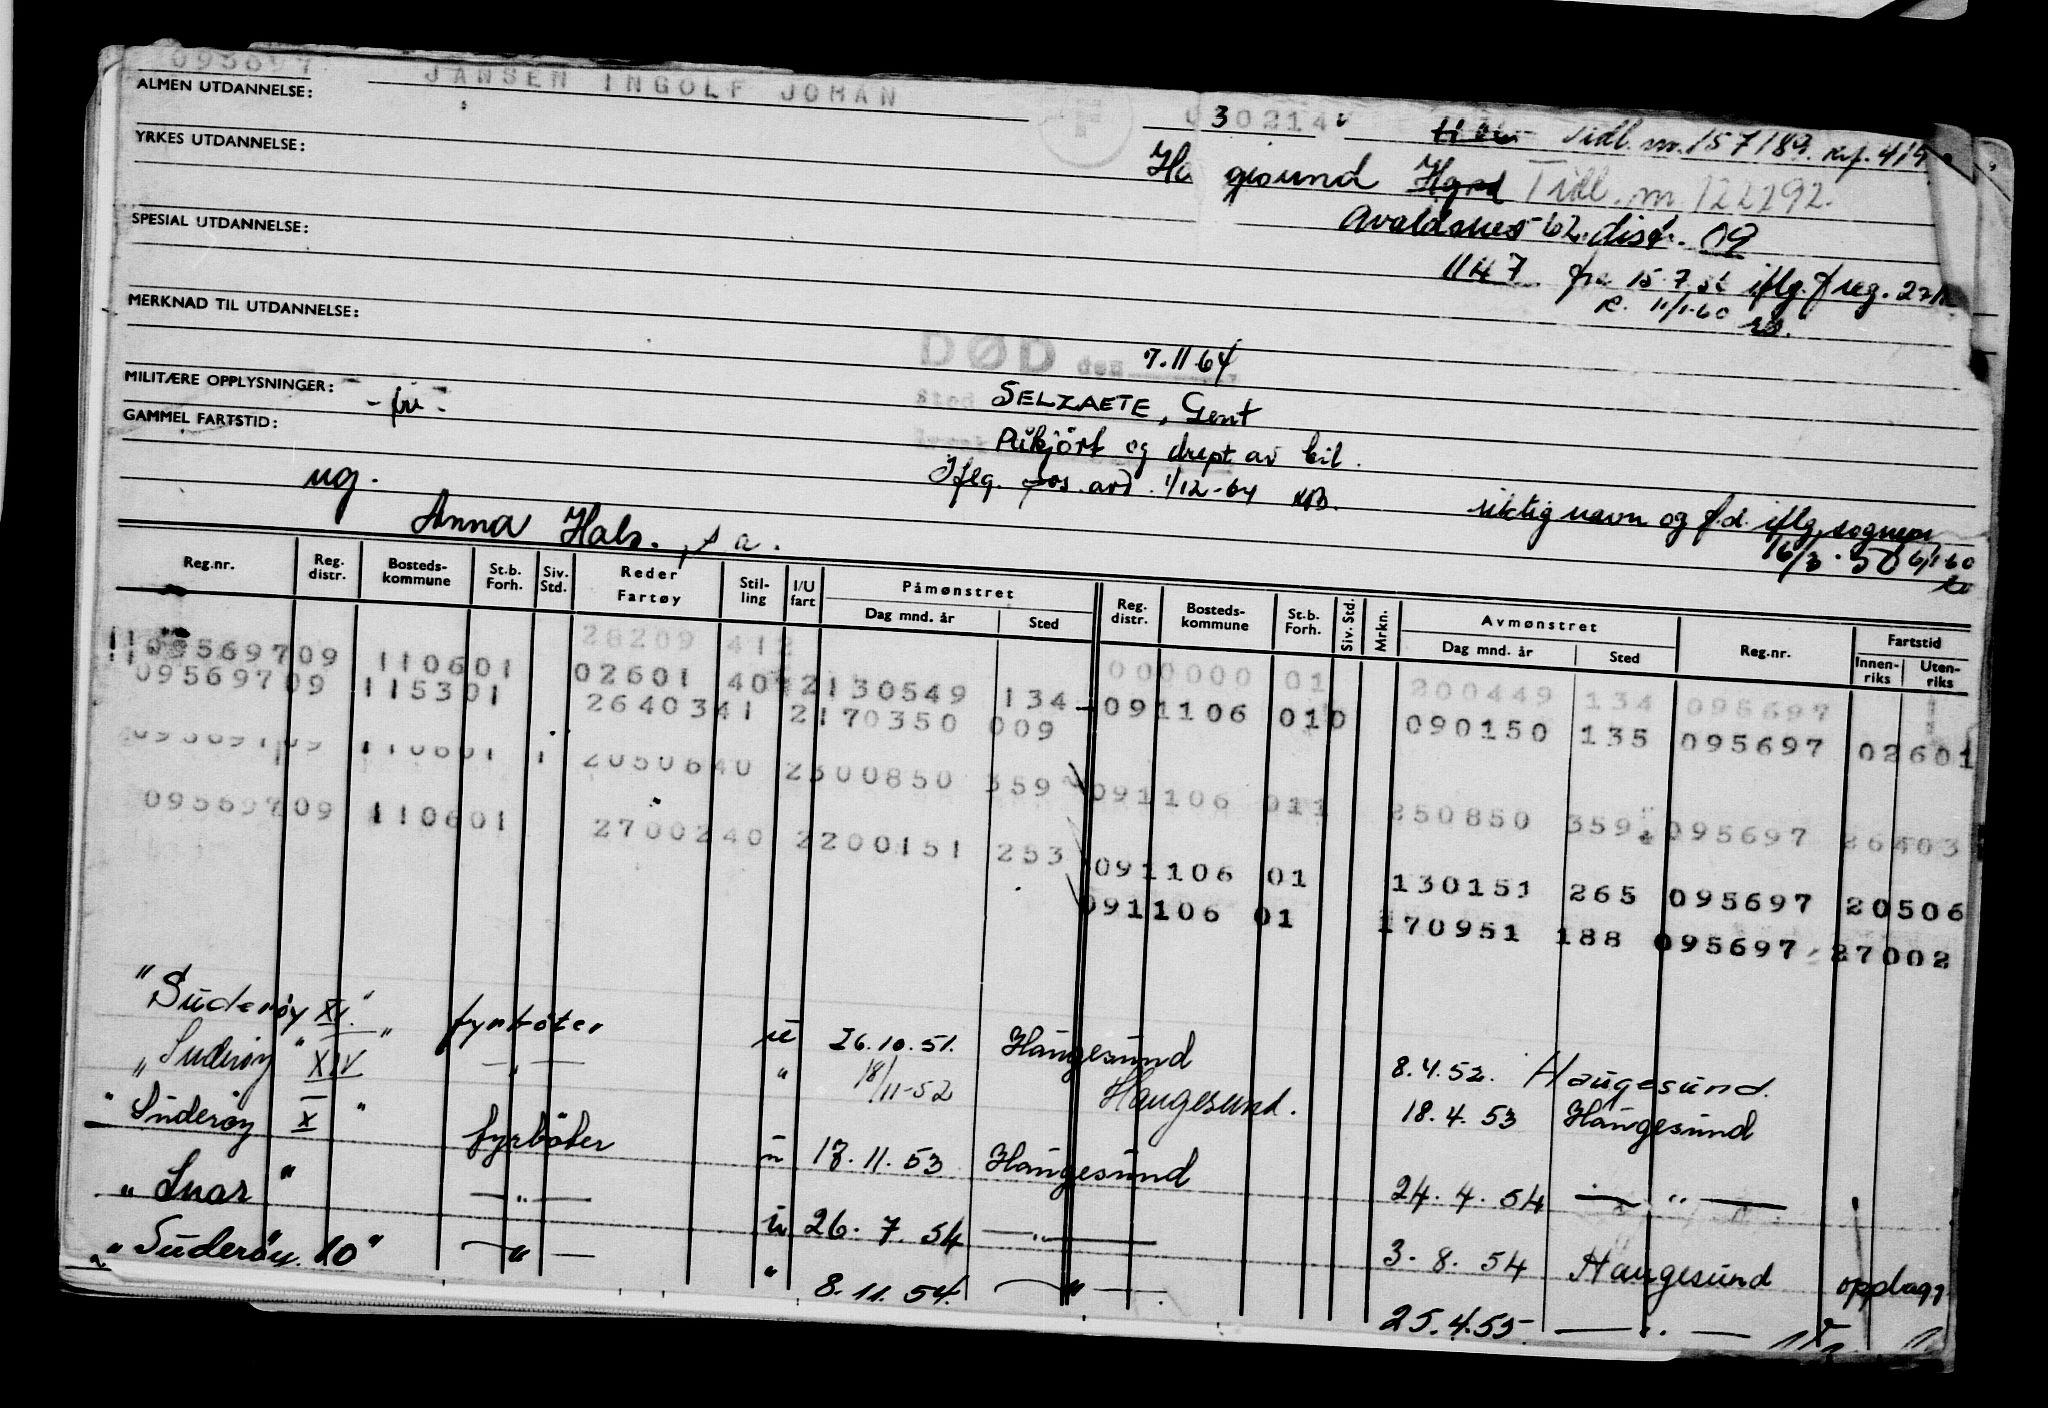 095697 JANSEN INGOLF JOHAN 030214
ALMEN UTDANNELSE: Tidl. nr. 157189.
F
YRKES UTDANNELSE: Haugesund Tidl. nr. 122292.
Avaldsnes 62. distr. 09
SPESIAL UTDANNELSE: 1147 fra 15.7.
11/1-60
MERKNAD TIL UTDANNELSE:
DØD den 7.11 64
MILITÆRE OPPLYSNINGER: - fri -
Sted SELZAETE, Gent
GAMMEL FARTSTID:
Påkjört og drept av bil.
ug. Iflg. pos. avd. 1/12-64
riktig navn og f.d. iflg. sognepr.
Anna Hals., s a. 16/3.50 6/1-60
Reg.nr. Reg. distr. Bosteds-kommune St.b. Forh. Siv. Std. Reder Fartøy Stil-ling I/U fart Påmønstret Dag mnd. år Sted Reg. distr. Bosteds-kommune St.b. Forh. Siv. Std. Mrkn. Avmønstret Dag mnd. år Sted Reg.nr. Fartstid Innen-riks Uten-riks
28209 412 000000 01 200449 134 095697
09569709 110601 02601 40 2130549 134 091106 010 090150 135 095697 02601
09569709 115301 2640341 2170350 009 091106 011 250850 359 095697 26403
09569709 110601 2050640 2300850 359 091106 01 130151 265 095697 20506
09569709 110601 2700240 2200151 253 091106 01 170951 188 095697 27002
"Suderøy XV." fyrbøter u 26.10.51. Haugesund 8.4.52. Haugesund.
"Suderøy XIV" — " — " 18/11-52 Haugesund. 18.4.53 Haugesund
"Suderøy X" fyrbøter u 17.11.53 Haugesund 24.4.54 — " —
"Snar" — " — u 26.7.54 — " — 3.8.54 Haugesund opplagg
"Suderøy 10" — " — " 8.11.54. — " — 25.4.55. — " —